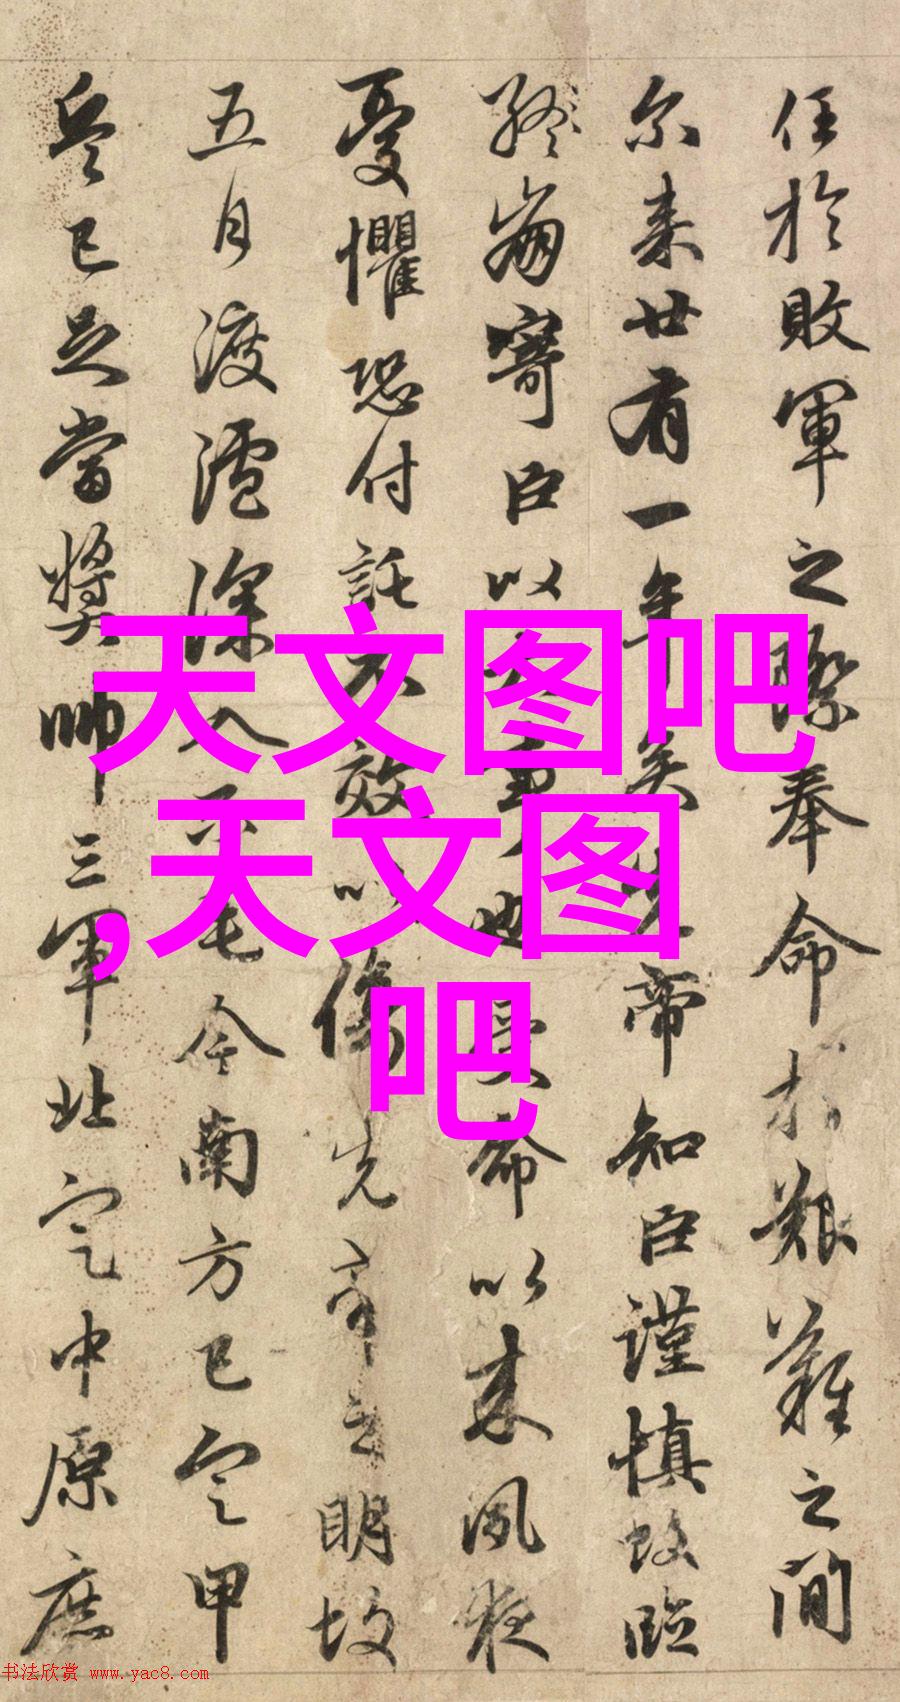 任於敗軍之際奉命於艱難之間
尔来廿有一年矣先帝知臣謹慎故臨
終崩寄臣以大事也受命以来夙夜
憂懼恐付託不效以傷先帝之明故
五月渡瀘深入不毛今南方已定甲
兵已足當獎帥三軍北定中原庶
天文图吧
,天文图
吧
书法欣赏 www.yac8.com